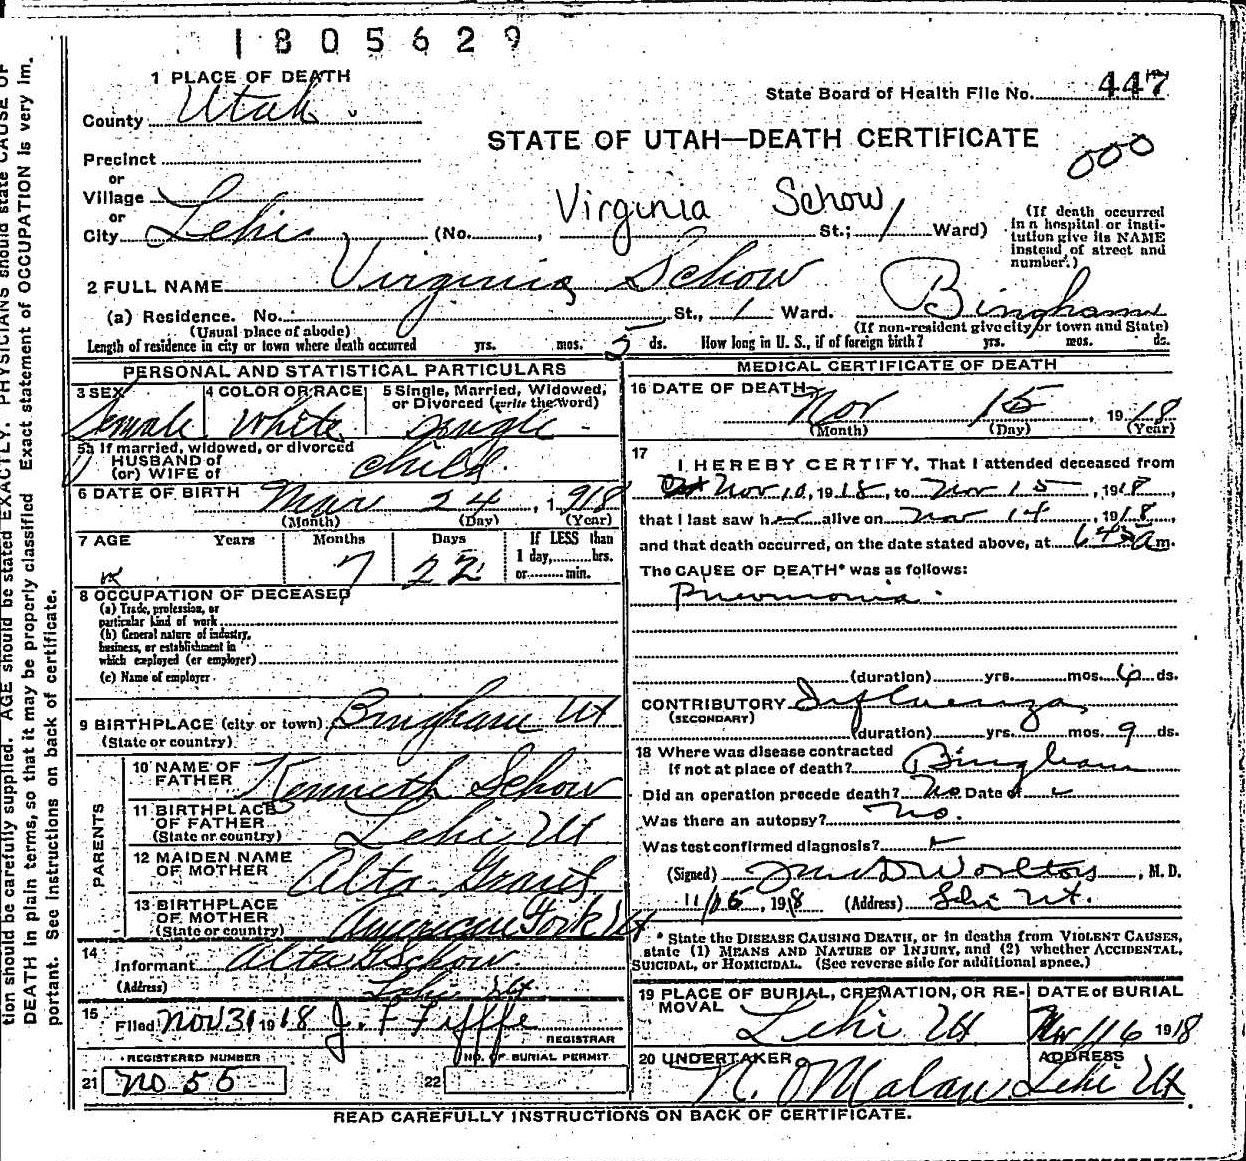 1805629
1 PLACE OF DEATH
County Utah
State Board of Health File No. 447
STATE OF UTAH—DEATH CERTIFICATE
000
Precinct
or
Village
or
City Lehi (No. , Virginia Schow St.; 1 Ward)
(If death occurred in a hospital or institution give its NAME instead of street and number.)
2 FULL NAME Virginia Schow
(a) Residence. No. St., 1 Ward. Bingham
(Usual place of abode) (If non-resident give city or town and State)
Length of residence in city or town where death occurred yrs. mos. 5 ds. How long in U. S., if of foreign birth? yrs. mos. ds.
PERSONAL AND STATISTICAL PARTICULARS
3 SEX Female
4 COLOR OR RACE White
5 Single, Married, Widowed, or Divorced (write the word) Single
5a If married, widowed, or divorced
HUSBAND of
(or) WIFE of child.
6 DATE OF BIRTH Mar 24, 1918
(Month) (Day) (Year)
7 AGE Years Months Days If LESS than
1 day, hrs.
or min.
7 22
8 OCCUPATION OF DECEASED
(a) Trade, profession, or
particular kind of work
(b) General nature of industry,
business, or establishment in
which employed (or employer)
(c) Name of employer
9 BIRTHPLACE (city or town) Bingham Ut
(State or country)
PARENTS
10 NAME OF
FATHER Kenneth Schow
11 BIRTHPLACE
OF FATHER Lehi Ut
(State or country)
12 MAIDEN NAME
OF MOTHER Alta
13 BIRTHPLACE
OF MOTHER American Fork Ut
(State or country)
14
Informant Alta G Schow
(Address) Lehi Ut
15 Filed Nov 31 1918 J. F Fyffe
REGISTRAR
REGISTERED NUMBER NO. OF BURIAL PERMIT
21 No. 55 22
MEDICAL CERTIFICATE OF DEATH
16 DATE OF DEATH Nov 15, 1918
(Month) (Day) (Year)
17
I HEREBY CERTIFY, That I attended deceased from
Nov 10, 1918, to Nov 15, 1918,
that I last saw her alive on Nov 14, 1918,
and that death occurred, on the date stated above, at a m.
The CAUSE OF DEATH* was as follows:
Pneumonia
(duration) yrs. mos. 6 ds.
CONTRIBUTORY Influenza
(SECONDARY)
(duration) yrs. mos. 9 ds.
18 Where was disease contracted
if not at place of death? Bingham
Did an operation precede death? No Date of
Was there an autopsy? No.
Was test confirmed diagnosis?
(Signed) , M. D.
11/15, 1918 (Address) Lehi Ut.
* State the DISEASE CAUSING DEATH, or in deaths from VIOLENT CAUSES,
state (1) MEANS AND NATURE OF INJURY, and (2) whether ACCIDENTAL,
SUICIDAL, or HOMICIDAL. (See reverse side for additional space.)
19 PLACE OF BURIAL, CREMATION, OR REMOVAL Lehi Ut
DATE of BURIAL Nov 16 1918
20 UNDERTAKER
ADDRESS Lehi Ut
READ CAREFULLY INSTRUCTIONS ON BACK OF CERTIFICATE.
tion should be carefully supplied. AGE should be stated EXACTLY. PHYSICIANS should state CAUSE OF
DEATH in plain terms, so that it may be properly classified. Exact statement of OCCUPATION is very im-
portant. See instructions on back of certificate.